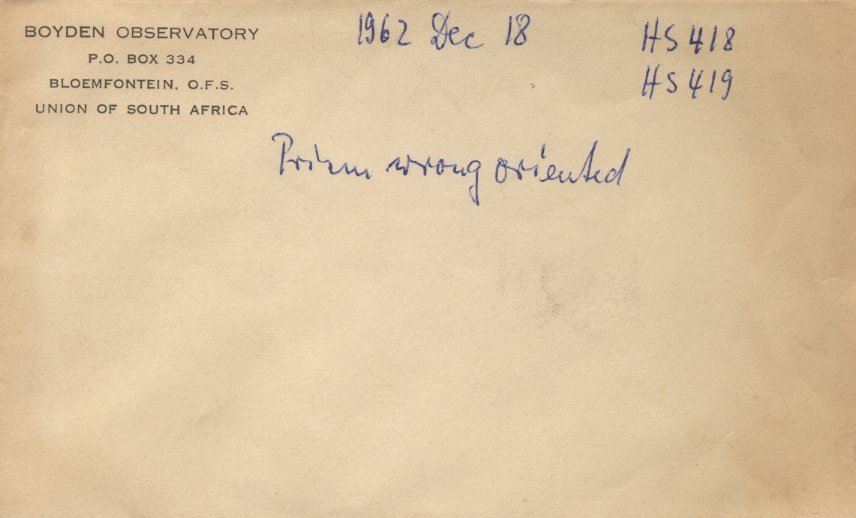 BOYDEN OBSERVATORY
P.O. BOX 334
BLOEMFONTEIN. O.F.S.
UNION OF SOUTH AFRICA
1962 Dec 18
HS 418
HS 419
Prism wrong oriented